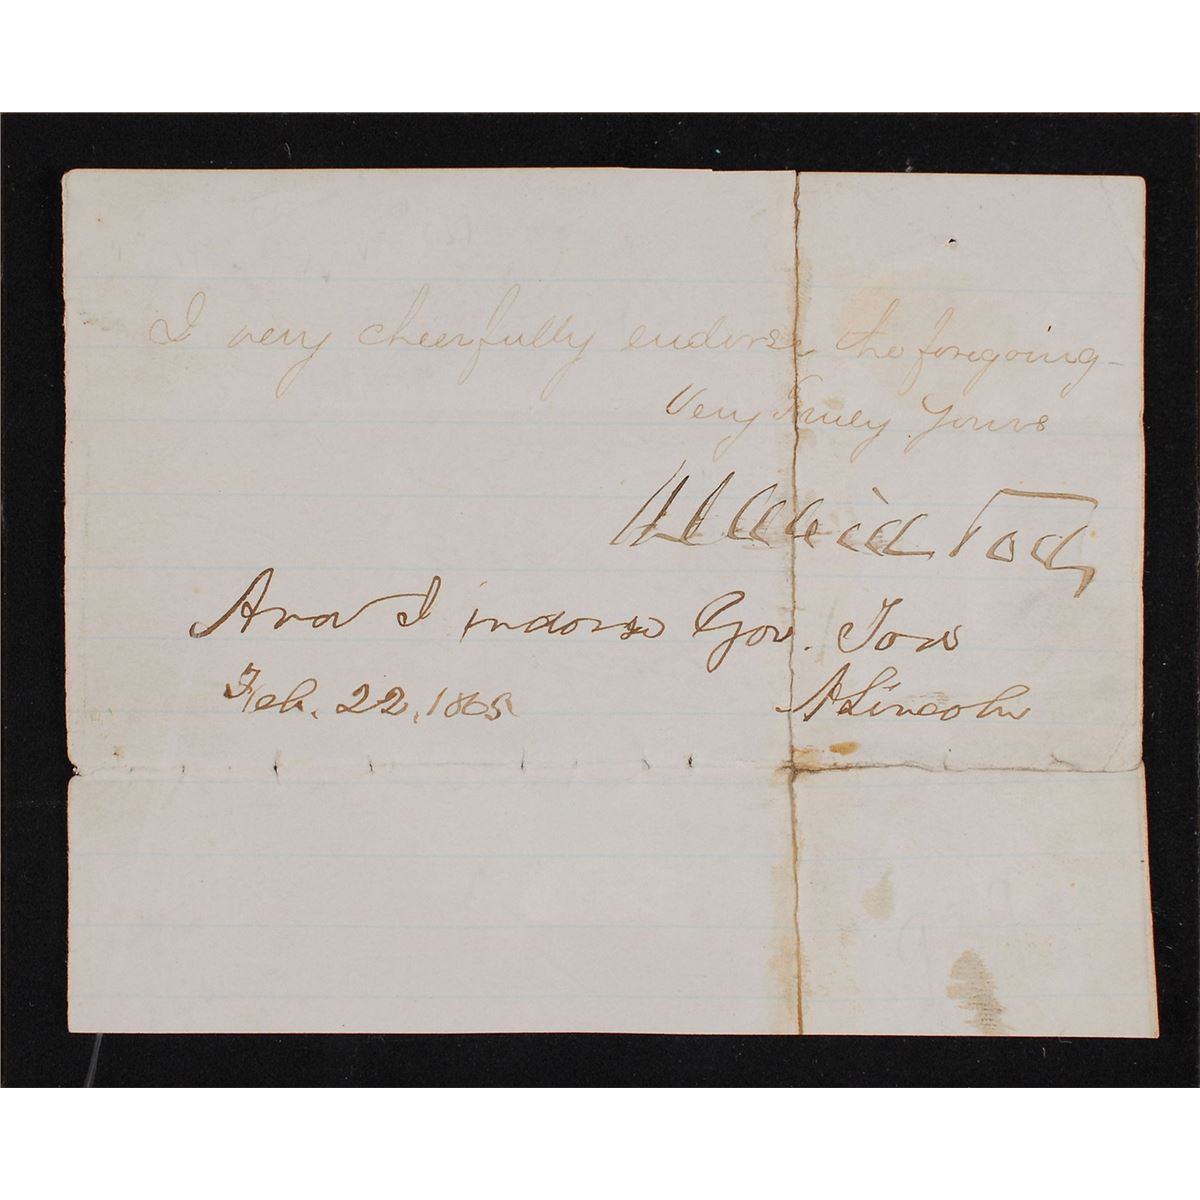 I very cheerfully endorse the foregoing —
Very Truly Yours
David Tod
And I indorse Gov. Tod
Feb. 22, 1865
A Lincoln